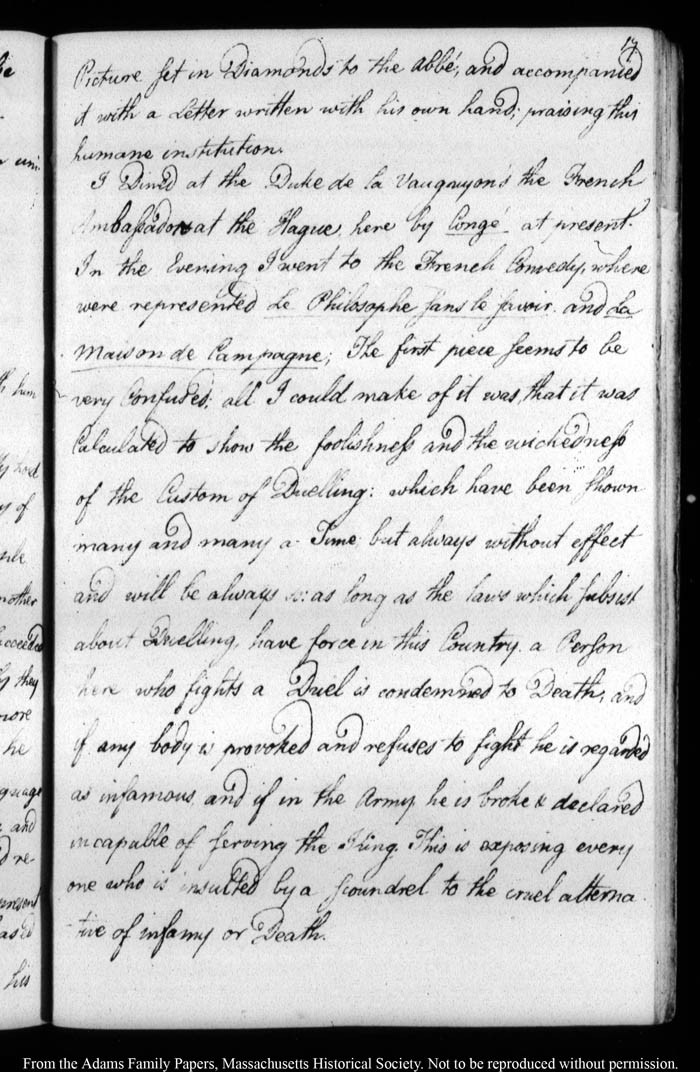 17
Picture set in Diamonds to the Abbé, and accompanied
it with a Letter written with his own hand; praising this
humane institution.
I Dined at the Duke de la Vauguyon's the French
Ambassador at the Hague, here by Congé at present.
In the Evening I went to the French Comedy, where
were represented Le Philosophe sans le savoir. and La
Maison de Campagne; The first piece seems to be
very Confused; all I could make of it was, that it was
Calculated to show the foolishness and the wickedness
of the Custom of Duelling: which have been shown
many and many a Time, but always without effect
and will be always so: as long as the laws which subsist
about Duelling, have force in this Country. a Person
here who fights a Duel is condemned to Death, and
if any body is provoked and refuses to fight he is regarded
as infamous, and if in the Army he is broke & declared
incapable of serving the King. This is exposing every
one who is insulted by a scoundrel to the cruel alterna
-tive of infamy or Death.
uni
hum
y of
nother
succeeded
y they
more
he
guage
and
d re
present
his
From the Adams Family Papers, Massachusetts Historical Society. Not to be reproduced without permission.